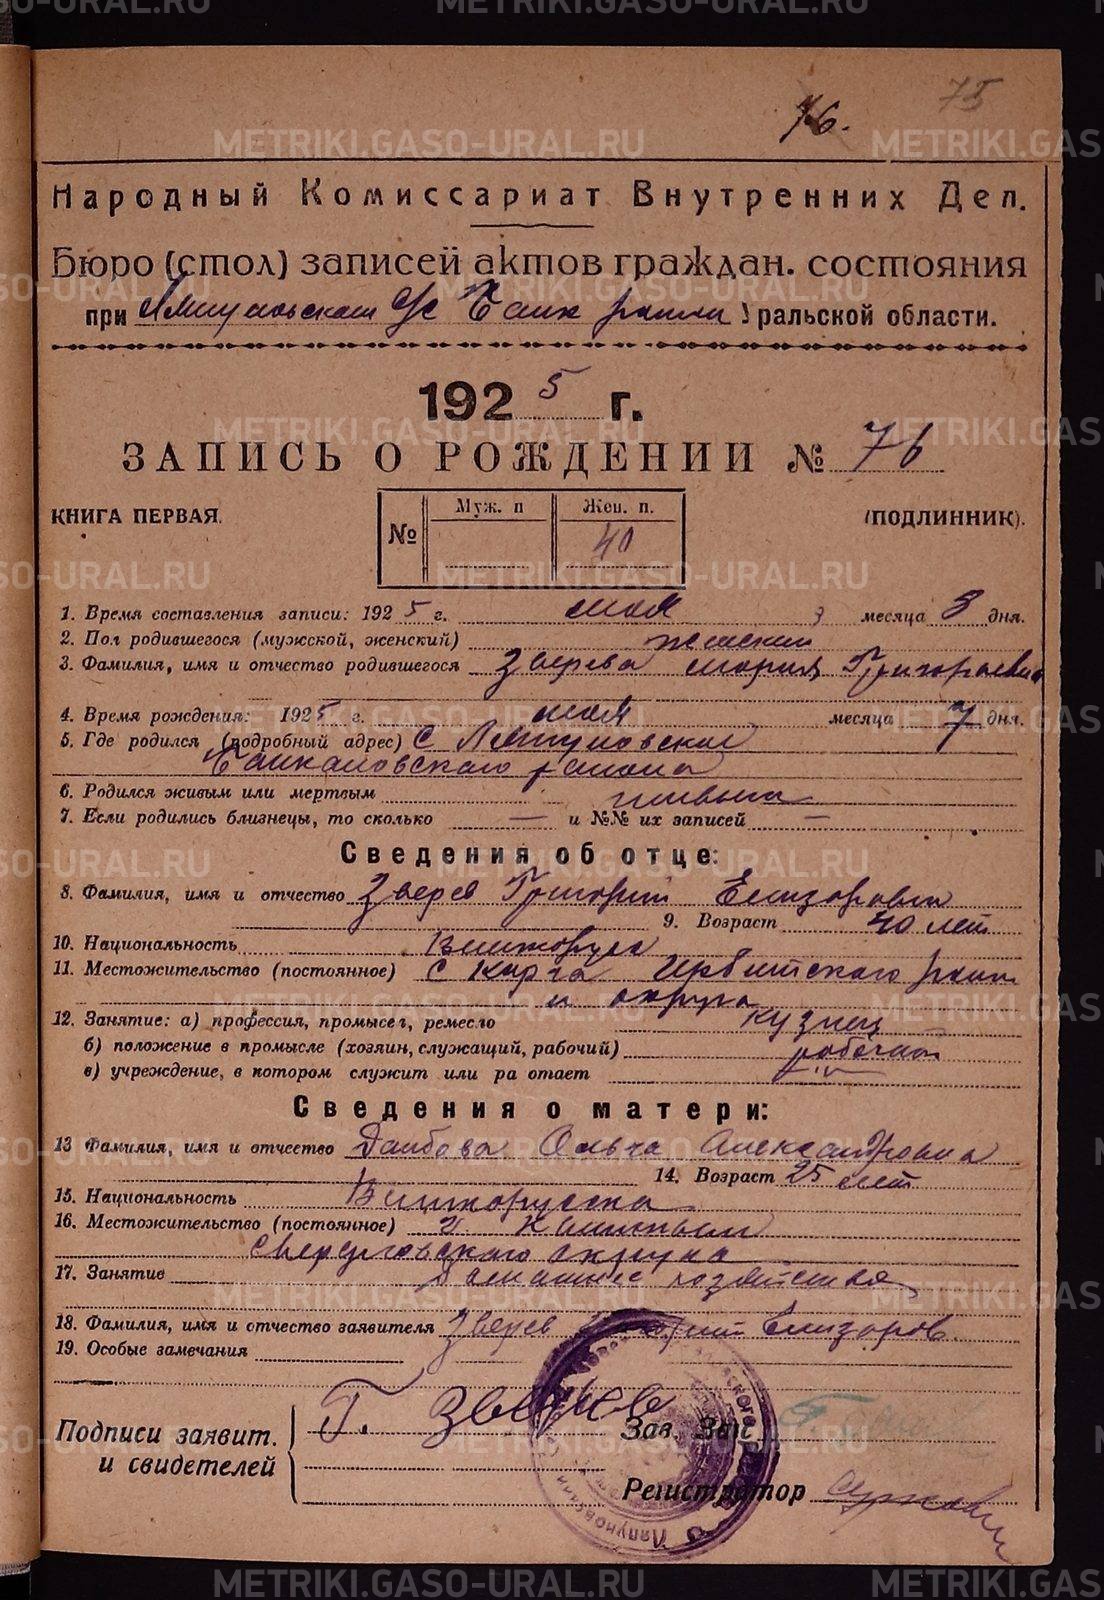 75
76.
Народный Комиссариат Внутренних Дел.
Бюро (стол) записей актов граждан. состояния
при Ляпуновском с/с Байк района Уральской области.
1925 г.
ЗАПИСЬ О РОЖДЕНИИ № 76
КНИГА ПЕРВАЯ.
№ Муж. п Жен. п.
40
(ПОДЛИННИК).
1. Время составления записи: 1925 г. мая месяца 8 дня.
2. Пол родившегося (мужской, женский) женский
3. Фамилия, имя и отчество родившегося Зверева Мария Григорьевна
4. Время рождения: 1925 г. мая месяца 7 дня.
5. Где родился (подробный адрес) С Ляпуновское
Байкаловского района
6. Родился живым или мертвым живым
7. Если родились близнецы, то сколько — и №№ их записей —
Сведения об отце:
8. Фамилия, имя и отчество Зверев Григорий Елизарович
9. Возраст 40 лет
10. Национальность Великорусс
11. Местожительство (постоянное) С Кирга Ирбитского района
и округа
12. Занятие: а) профессия, промысел, ремесло кузнец
б) положение в промысле (хозяин, служащий, рабочий) рабочий
в) учреждение, в котором служит или ра отает
Сведения о матери:
13 Фамилия, имя и отчество Ольга Александровна
14. Возраст 25 лет
15. Национальность Великорусска
16. Местожительство (постоянное)
Свердловского округа
17. Занятие домашнее хозяйство
18. Фамилия, имя и отчество заявителя Зверев Григорий Елизаров.
19. Особые замечания
Подписи заявит.
и свидетелей
Г. Зверев
Зав. Загс
Регистратор
METRIKI.GASO-URAL.RU